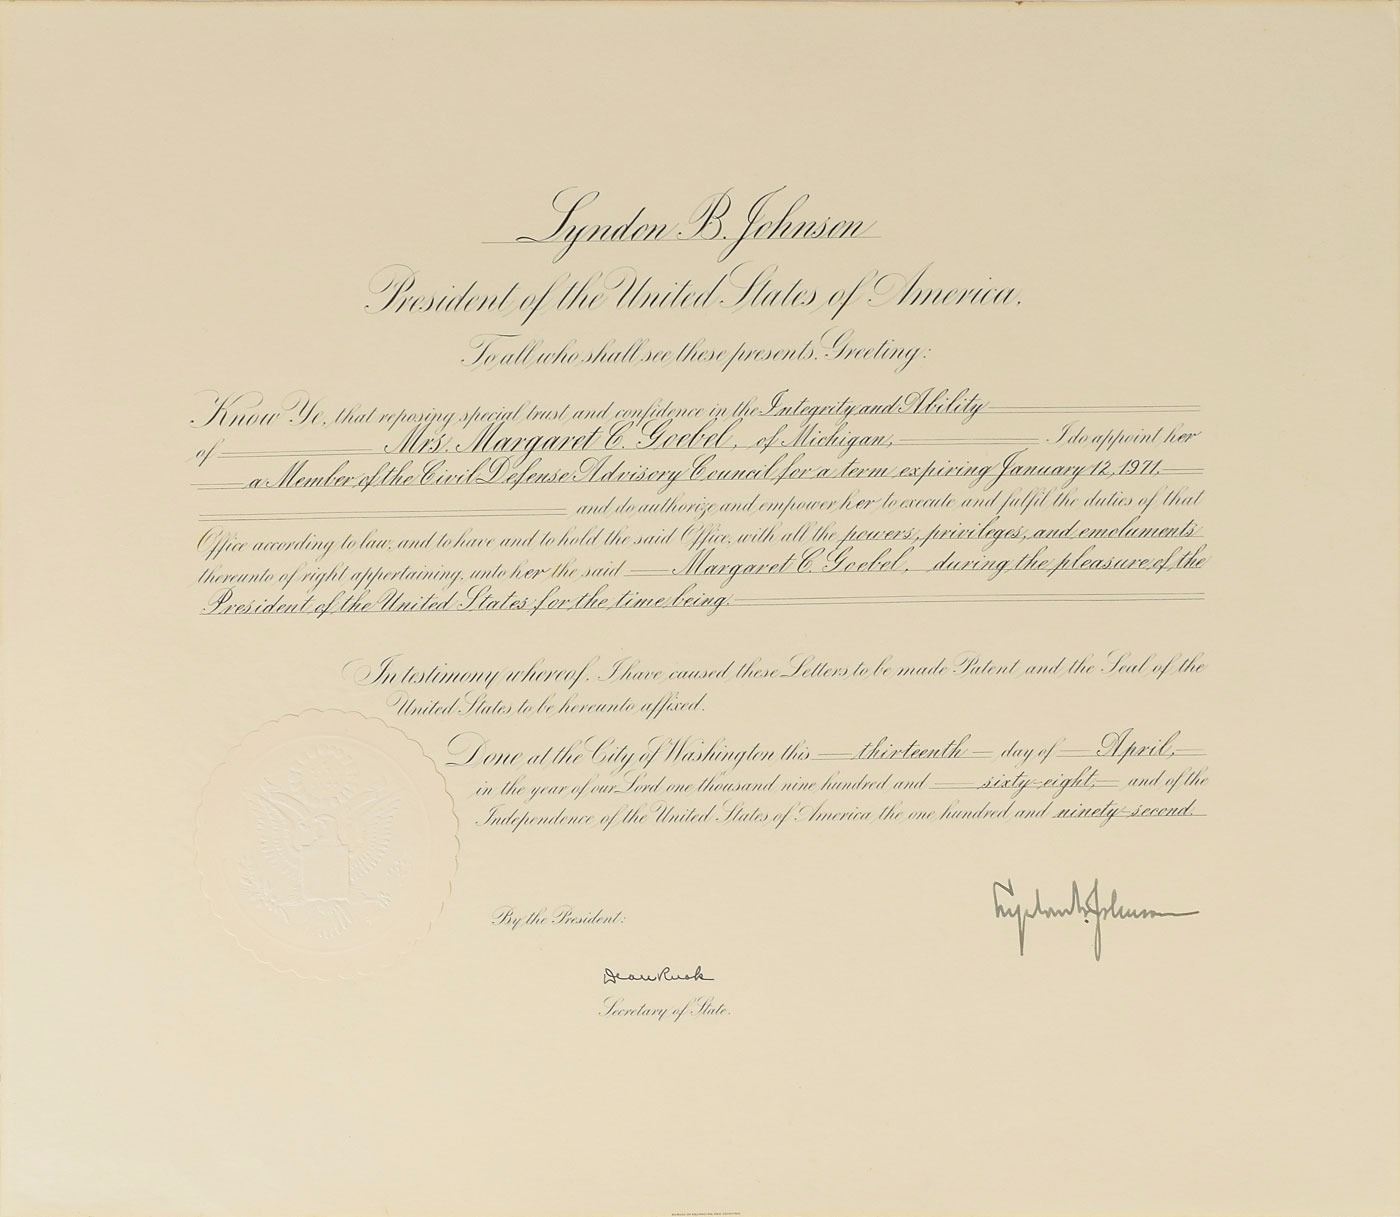 Lyndon B. Johnson
President of the United States of America.
To all who shall see these presents, Greeting:
Know Ye, that reposing special trust and confidence in the Integrity and Ability
of Mrs. Margaret C. Goebel, of Michigan, I do appoint her
a Member of the Civil Defense Advisory Council for a term expiring January 12, 1971,
and do authorize and empower her to execute and fulfil the duties of that
Office according to law, and to have and to hold the said Office, with all the powers, privileges, and emoluments
thereunto of right appertaining, unto her the said Margaret C. Goebel, during the pleasure of the
President of the United States for the time being.
In testimony whereof, I have caused these Letters to be made Patent and the Seal of the
United States to be hereunto affixed.
Done at the City of Washington this thirteenth day of April,
in the year of our Lord one thousand nine hundred and sixty-eight, and of the
Independence of the United States of America the one hundred and ninety-second.
Lyndon B. Johnson
By the President:
Dean Rusk
Secretary of State.